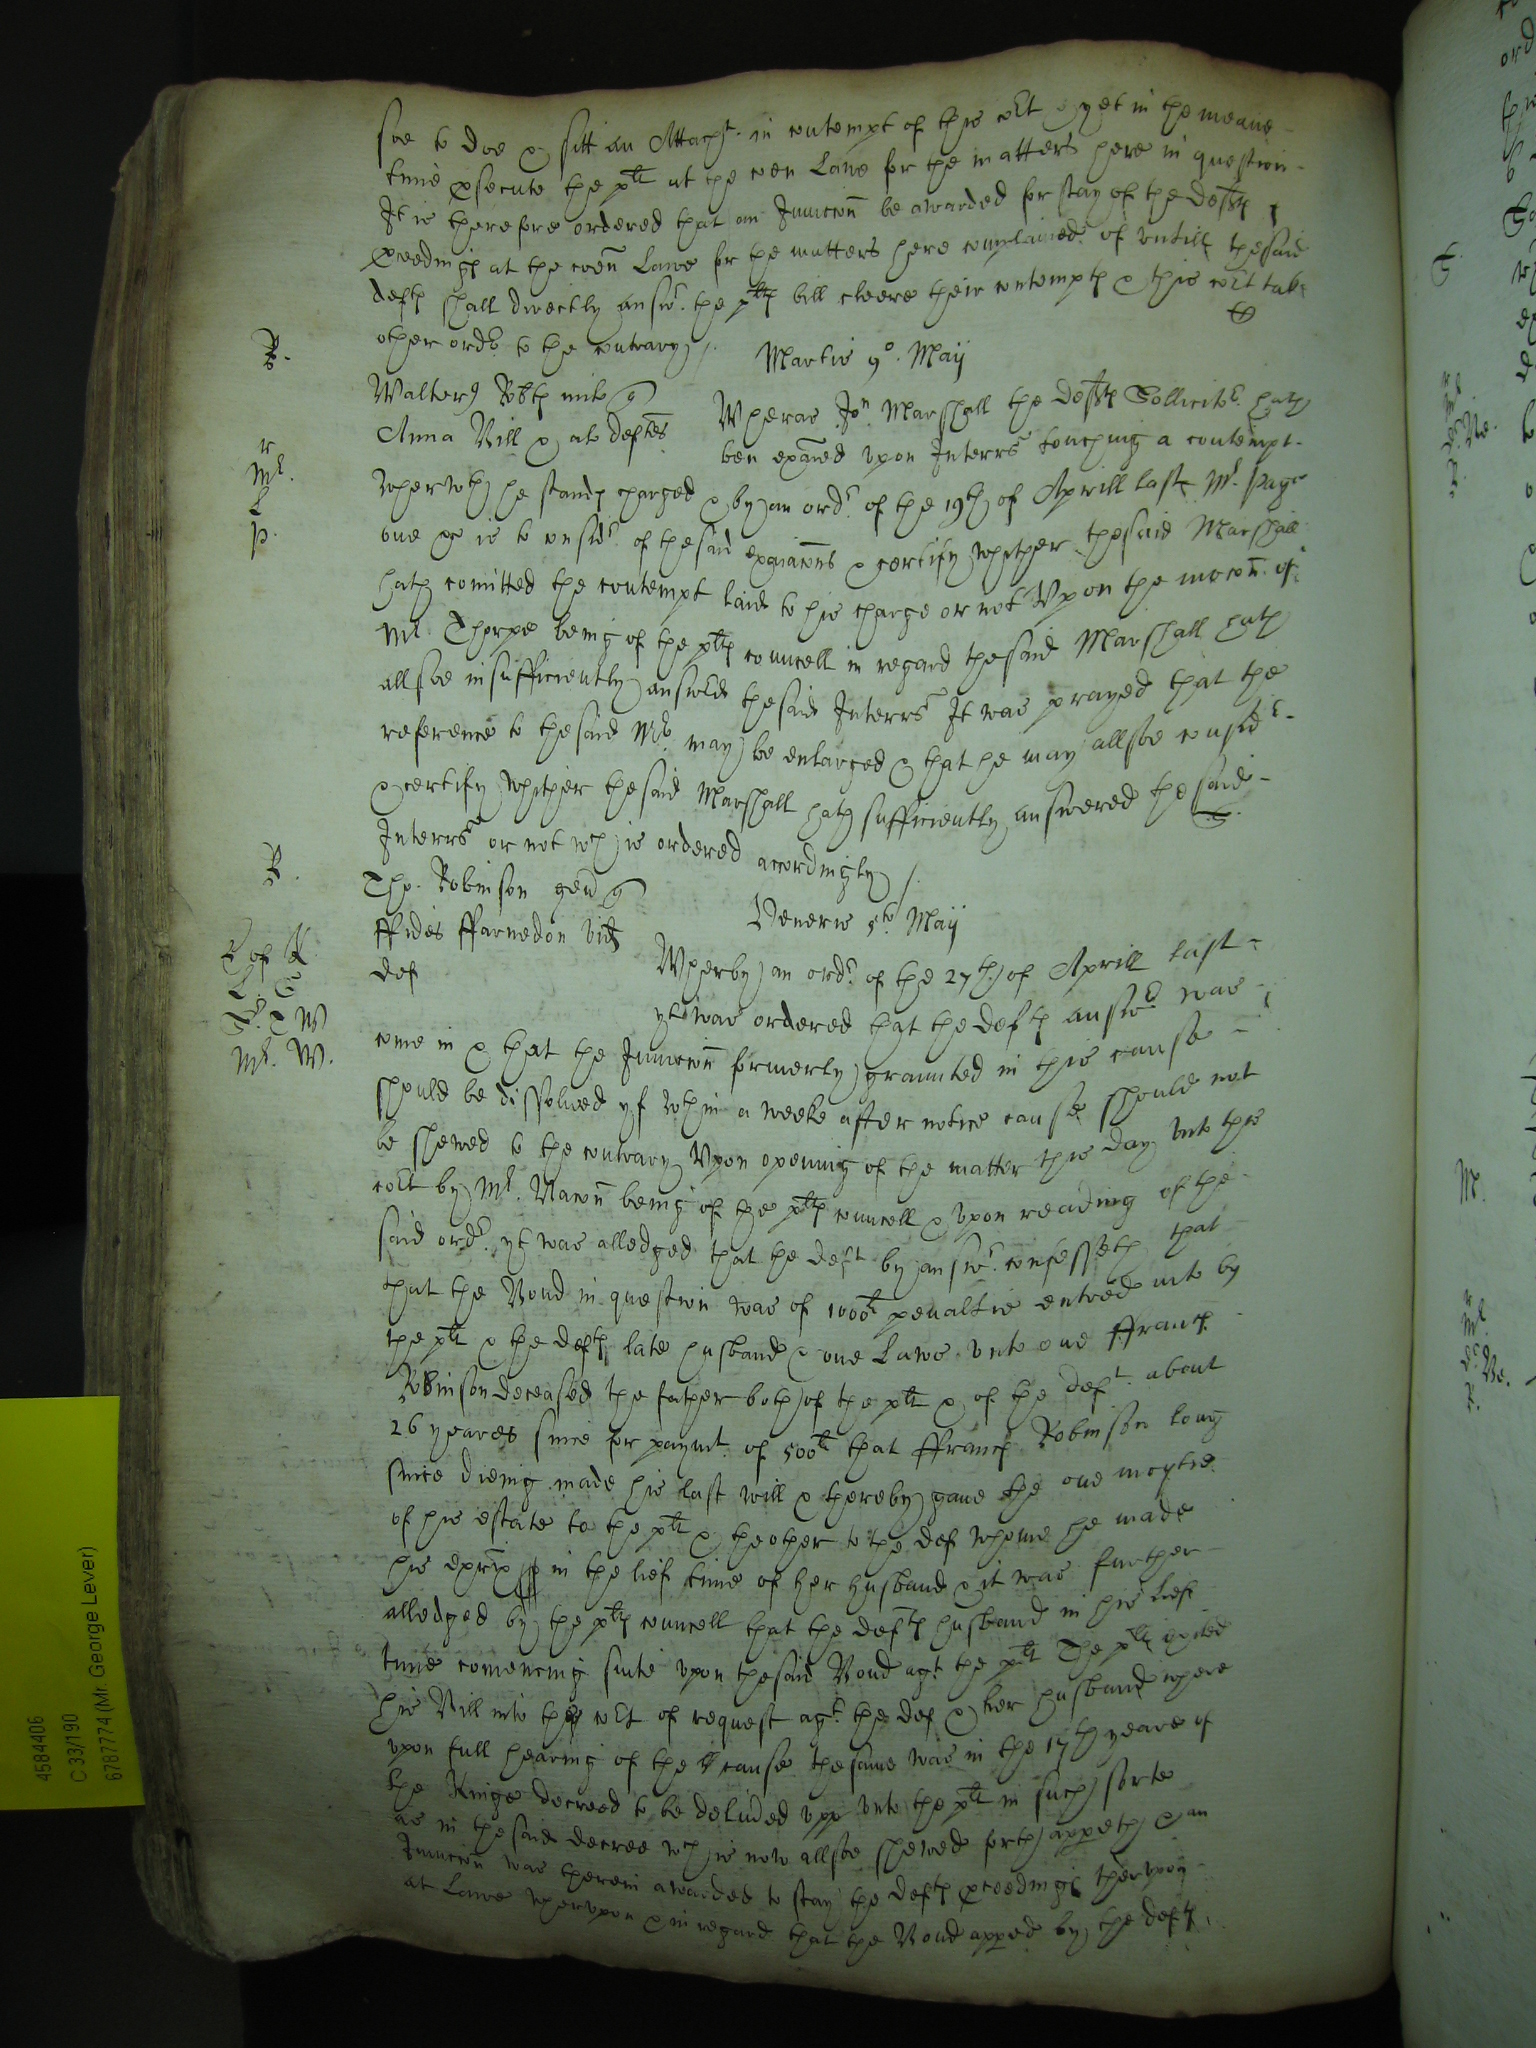 soe to doe & sitt an Attachmt in contempt of this cort & yet in the meane
time psecute the plt at the coen Lawe for the matters here in question
It is therefore ordered that an Iniunccon be awarded for stay of the defts
pceedings at the coen Lawe for the matters here complained of untill the said
defts shall directly answr the plts bill cleere their contempts & this cort take
other ordr to the contrary
Martis 9o Maij
R.
Walterus Robts miles q
Anna Bill & al defts
Wheras Jon Marshall the defts Sollicitor hath
ben exaied upon Interrs touching a contempt
r
Mr.
L
p.
wherwth he stands charged & by an ordr of the 19th of Aprill last Mr Page
one &c is to considr of the said exaiacons & certify whither the said Marshall
hath comitted the contempt laid to his charge or not Upon the mocon of
Mr Thorpe being of the plts councell in regard the said Marshall hath
allsoe insufficiently answerd the said Interrs It was prayed that the
reference to the said Mr may be enlarged & that he may allsoe considr
& certify whither the said Marshall hath sufficiently answered the said
Interrs or not wch is ordered accordingly
R.
Tho. Robinson gen q
ffides ffarnedon vid
def
Veneris 5to Maij
Mr. W.
Wherby an ordr of the 27th of Aprill last
yt was ordered that the defts answer was
come in & that the Iniunccon formerly graunted in this cause
should be dissolved yf wthin a weeke after notice cause should not
be shewed to the contrary Upon opening of the matter this day unto this
cort by Mr. Bacon being of the plts councell & upon reading of the
said ordr yt was alledged that the deft by answr confesseth that
that the Bond in question was of 1000li penaltie entred into by
the plt & the defts late husband & one Lawe unto one ffrancs
Robinson deceased the father both of the plt & of the deft about
26 yeares since for paymt of 500li that ffrancs Robinson long
since dieing made his last will & thereby gave the one moytie
of his estate to the plt & the other to the def whome he made
his exrix in the lief time of her husband & it was further
alledged by the plts councell that the defts husband in his lief
time comencing suite upon the said Bond agt the plt The plt exited
his Bill into the cort of request agt the def & her husband where
upon full hearing of the cause the same was in the 17th yeare of
the Kinge decreed to be delived upp unto the plt in such sorte
as in the said decree wch is now allsoe shewed forth appeth & an
Iniunccon was therein awarded to stay the defts pceedings therupon
at Lawe wherupon & in regard that the Bond apped by the defts
4584406
C 33/190
6787774 (Mr. George Lever)